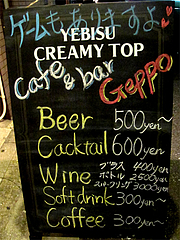 ゲームもありますよ♥
YEBISU
CREAMY TOP
Cafe & bar
Geppo
Beer 500yen~
Cacktail 600yen~
Wine グラス 400yen~
ボトル 2500yen~
スパークリング 3000yen~
Soft drink 300yen~
Coffee 300yen~